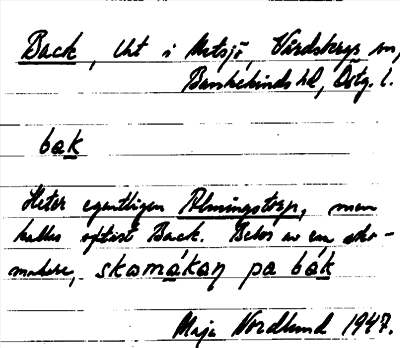 Back, lht i Metsjö, Vårdsbergs sn,
Bankekinds hd, Östg. l.
bak
Heter egentligen Almingstorp, men
kallas oftast Back. Bebos av en sko-
makare, skomákaṇ pa bák
Maja Nordlund 1947.